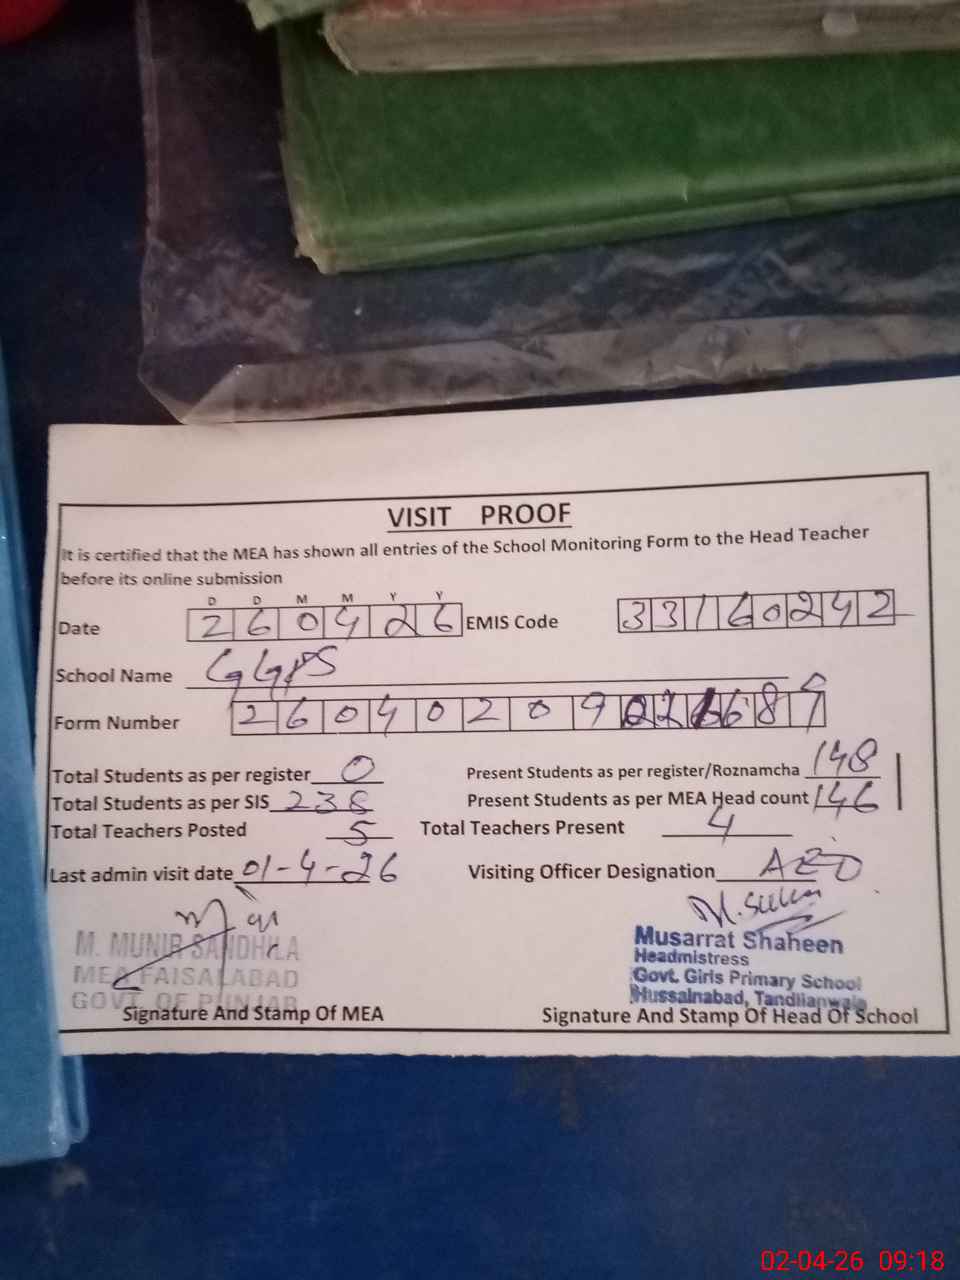 VISIT PROOF
It is certified that the MEA has shown all entries of the School Monitoring Form to the Head Teacher
before its online submission
D D M M Y Y
Date 260426 EMIS Code 33160242
School Name GGPS
Form Number 26040209
Total Students as per register 0 Present Students as per register/Roznamcha 148
Total Students as per SIS 238 Present Students as per MEA Head count 146
Total Teachers Posted 5 Total Teachers Present 4
Last admin visit date 01-4-26 Visiting Officer Designation AEO
M. MUNIR SANDHILA
MEA FAISALABAD
GOVT. OF PUNJAB
Signature And Stamp Of MEA
Musarrat Shaheen
Headmistress
Govt. Girls Primary School
Hussainabad, Tandlianwala
Signature And Stamp Of Head Of School
02-04-26 09:18